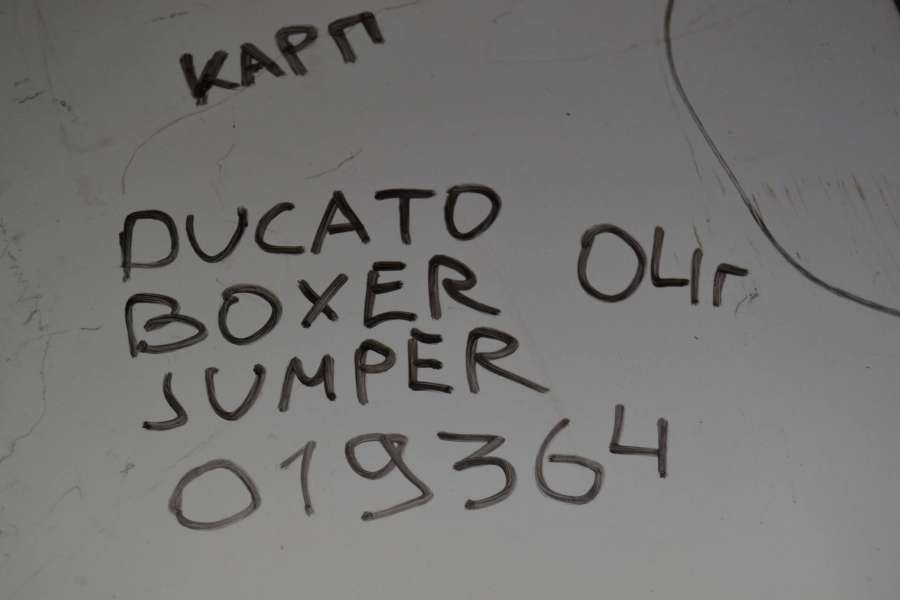 КАРП
DUCATO
BOXER
04г
JUMPER
019364